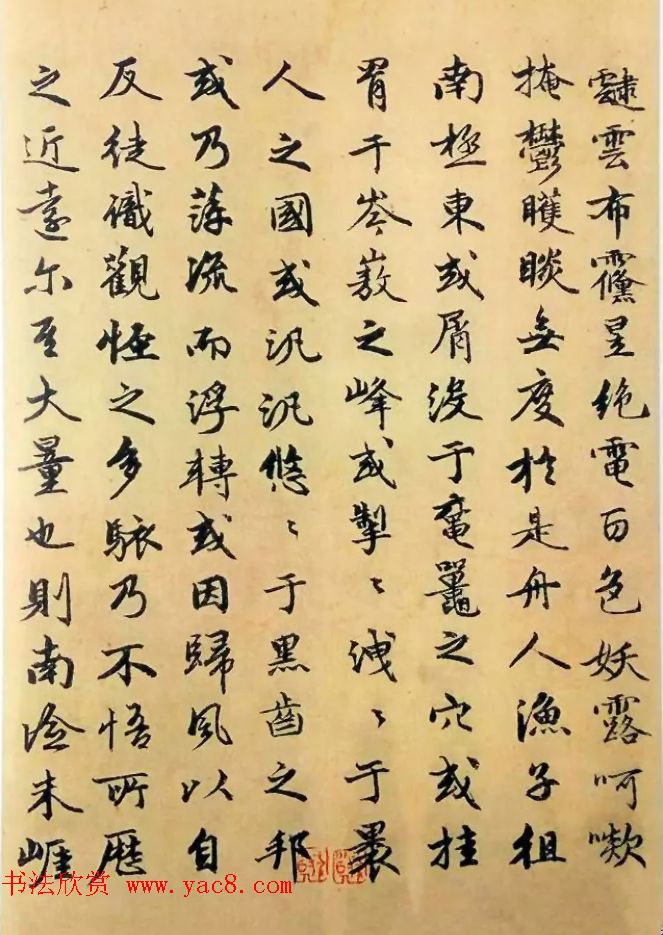 雲布絕電百色妖露呵㗵
掩鬱矆睒無度於是舟人漁子徂
南極東或屑沒于黿鼉之穴或挂
罥于岑嶅之峰或掣〻洩〻于裸
人之國或汎汎悠〻于黑齒之邦
或乃萍流而浮轉或因歸風以自
反徒識觀怪之多駭乃不悟所歷
之近遠尔大量也則南澰朱崖
书法欣赏 www.yac8.com